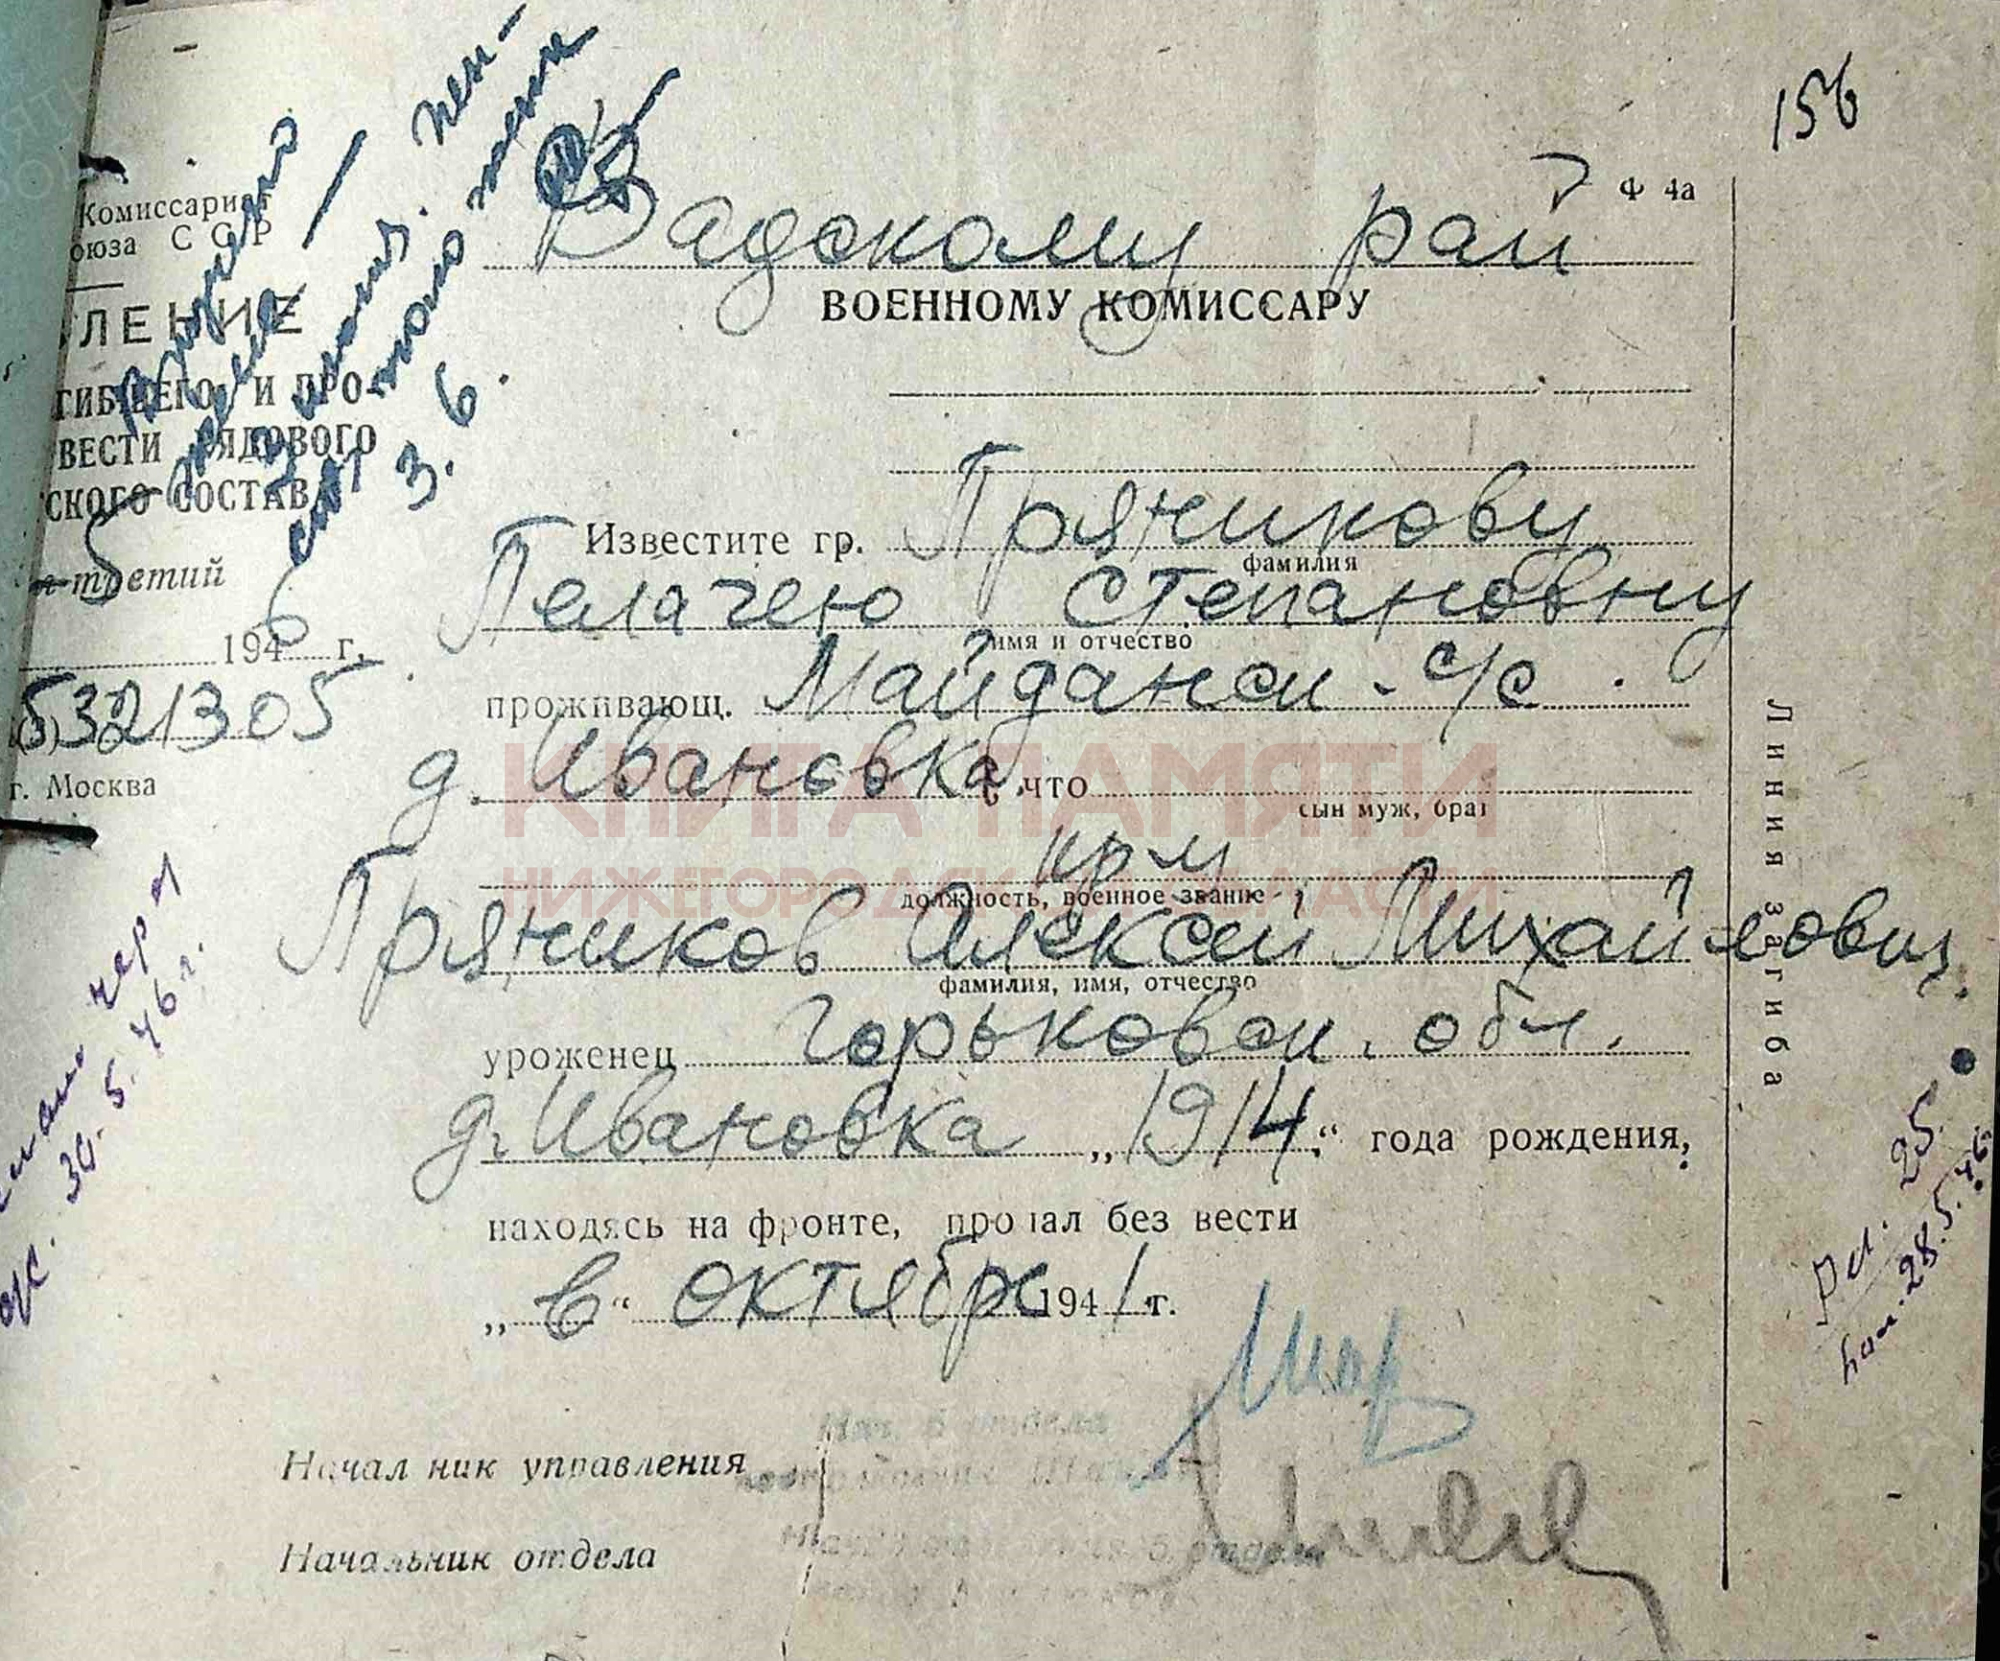 156
Ф 4а
Комиссариат
оюза ССР
ЛЕНИЕ
ГИБШЕГО И ПРО-
ВЕСТИ РЯДОВОГО
СКОГО СОСТАВА
третий
5
1946 г.
5321305
г. Москва
Вручено
3 экз.
пен-
3.6.
Вадскому рай
ВОЕННОМУ КОМИССАРУ
Известите гр. Пряникову
фамилия
Пелагею Степановну
имя и отчество
проживающ. Майданск. с/с
д. Ивановка, что
сын муж, брат
кр-ц
должность, военное звание
Пряников Алексей Михайлович
фамилия, имя, отчество
уроженец Горьковск. обл.
д. Ивановка „1914“ года рождения,
находясь на фронте, пропал без вести
„в“ октябре 1941 г.
Начальник управления
Начальник отдела
Линия загиба
30.5.46 г.
25.
28.5.46
КНИГА ПАМЯТИ
НИЖЕГОРОДСКОЙ ОБЛАСТИ